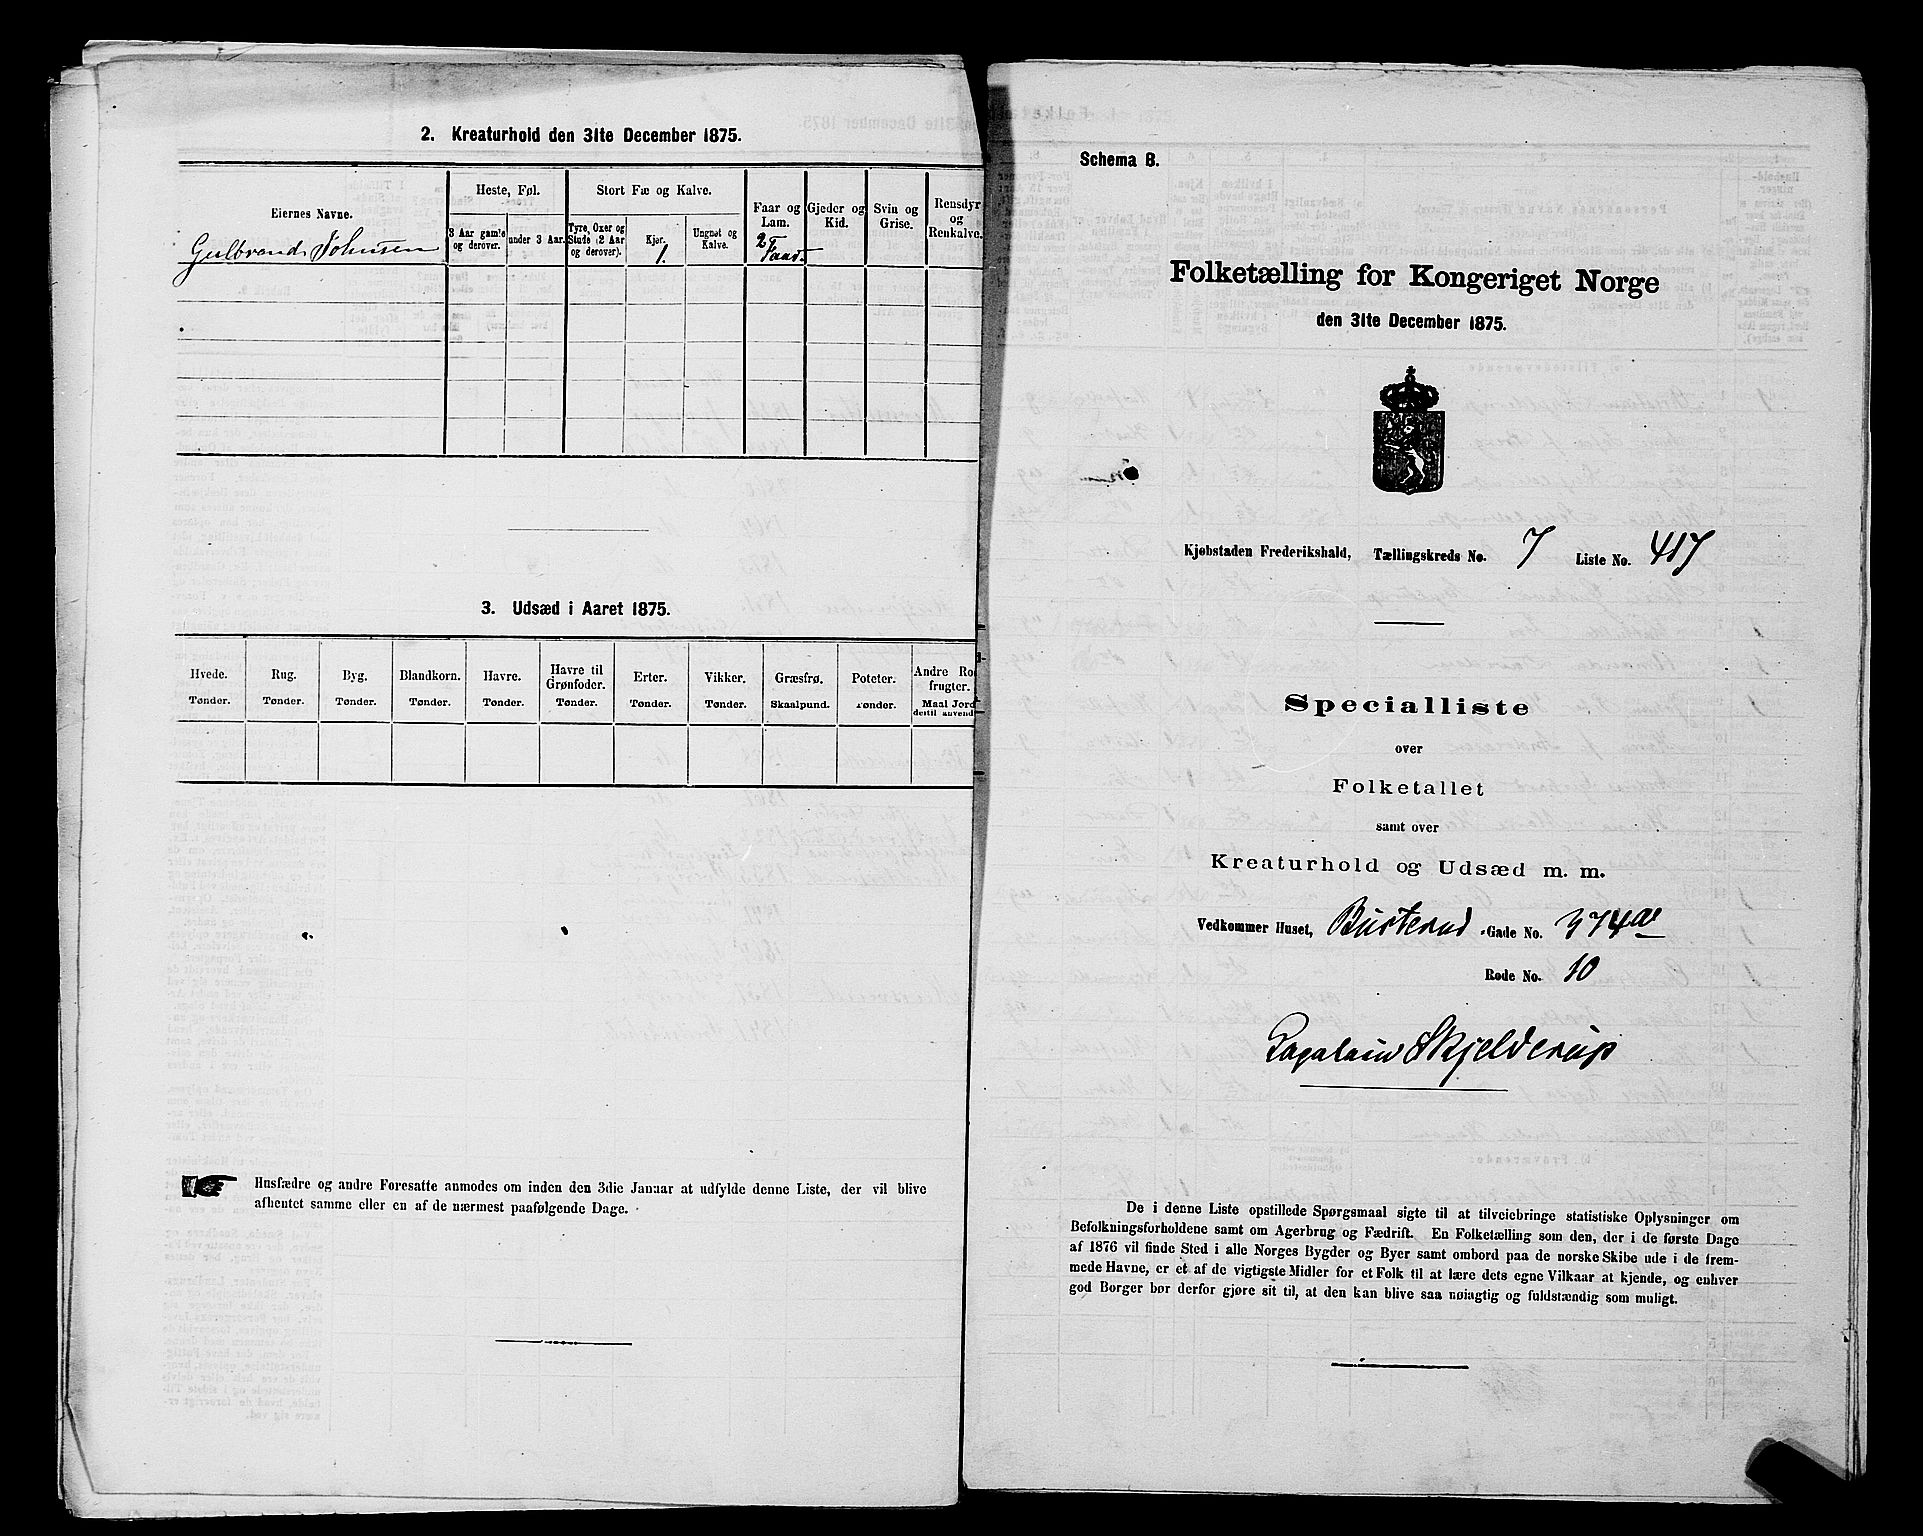 2. Kreaturhold den 31te December 1875.
Eiernes Navne.
Heste, Føl.
3 Aar gamle og derover.
under 3 Aar.
Stort Fæ og Kalve.
Tyre, Oxer og Stude (2 Aar og derover).
Kjør.
Ungnøt og Kalve.
Faar og Lam.
Gjeder og Kid.
Svin og Grise.
Rensdyr og Renkalve.
Gulbrand Johnsen 1. 2 Faar
3. Udsæd i Aaret 1875.
Hvede. Rug. Byg. Blandkorn. Havre. Havre til Grønfoder. Erter. Vikker. Græsfrø. Poteter. Andre Ro
frugter.
Tønder. Tønder. Tønder. Tønder. Tønder. Tønder. Tønder. Tønder. Skaalpund. Tønder. Maal Jord
dertil anvend
Husfædre og andre Foresatte anmodes om inden den 3die Januar at udfylde denne Liste, der vil blive
afhentet samme eller en af de nærmest paafølgende Dage.
Schema B.
Folketælling for Kongeriget Norge
den 31te December 1875.
Kjøbstaden Frederikshald, Tællingskreds No. 7 Liste No. 417
Specialliste
over
Folketallet
samt over
Kreaturhold og Udsæd m. m.
Vedkommer Huset, Busterud Gade No. 374a
Rode No. 10
Skjelderup
De i denne Liste opstillede Spørgsmaal sigte til at tilveiebringe statistiske Oplysninger om
Befolkningsforholdene samt om Agerbrug og Fædrift. En Folketælling som den, der i de første Dage
af 1876 vil finde Sted i alle Norges Bygder og Byer samt ombord paa de norske Skibe ude i de frem-
mede Havne, er et af de vigtigste Midler for et Folk til at lære dets egne Vilkaar at kjende, og enhver
god Borger bør derfor gjøre sit til, at den kan blive saa nøiagtig og fuldstændig som muligt.